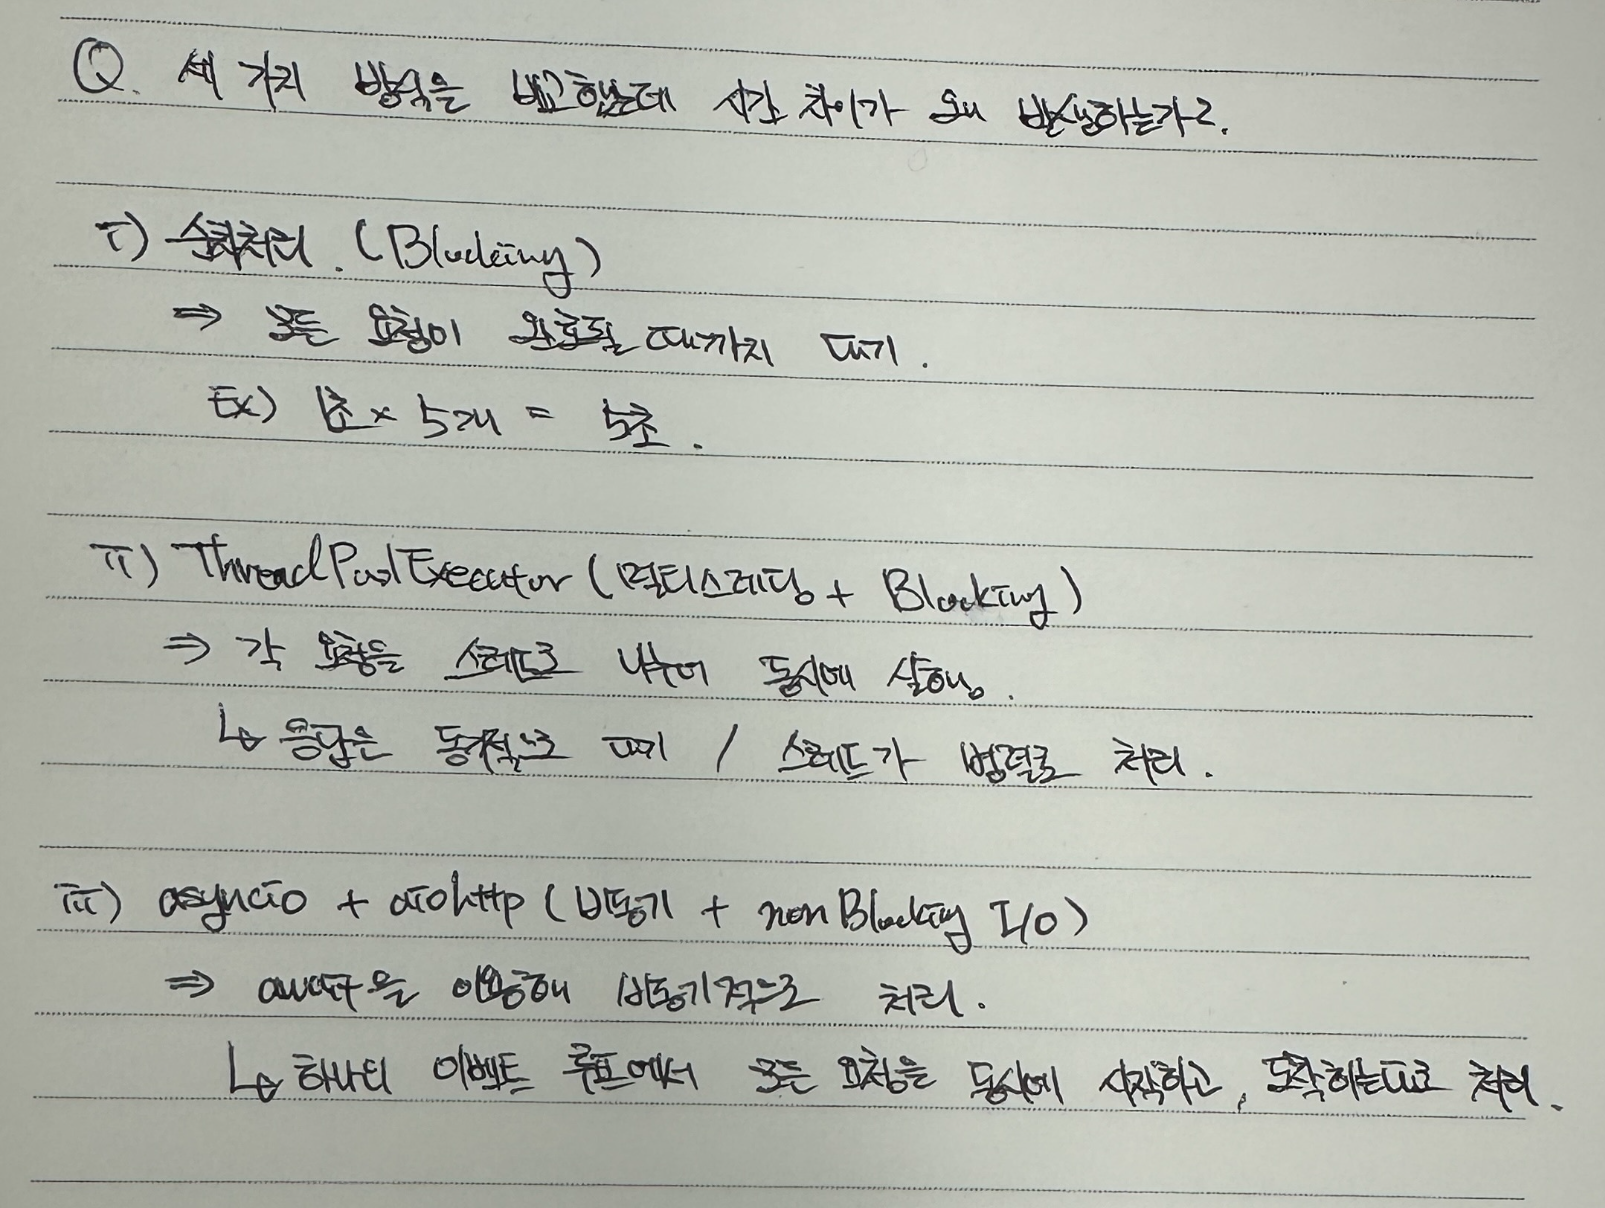 Q. 세 가지 방식을 비교했는데 시간 차이가 왜 발생하는가?.
i) 순차처리. (Blocking)
⇒ 모든 요청이 완료될 때까지 대기.
Ex) 1초 × 5개 = 5초.
ii) ThreadPoolExecutor (멀티스레딩 + Blocking)
⇒ 각 요청을 스레드로 나누어 동시에 실행.
↳ 응답은 동기적으로 대기 / 스레드가 병렬로 처리.
iii) asyncio + aiohttp (비동기 + nonBlocking I/O)
⇒ await을 이용해 비동기적으로 처리.
↳ 하나의 이벤트 루프에서 모든 요청을 동시에 시작하고, 도착하는대로 처리.